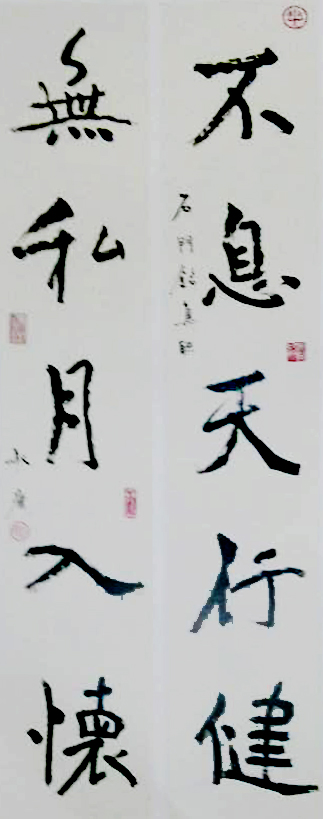 不息天行健
石門銘集聯
無私月入懷